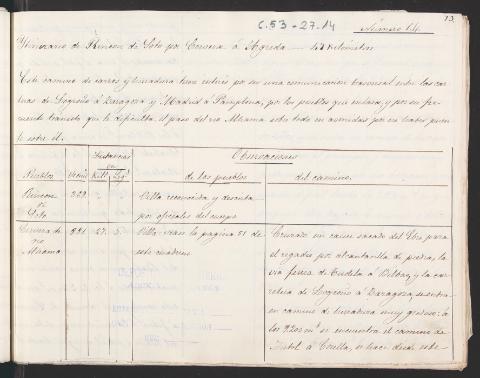 13
C.53-27.14
Número 14.
Itinerario de Rincon de Soto por Cervera á Agreda — 47 Kilómetros
Este camino de carros y herradura tiene interés por ser una comunicacion trasversal entre las car-
teras de Logroño á Zaragoza y Madrid á Pamplona, por los pueblos que enlaza, y por su fre-
cuente transito que le dificulta el paso del rio Alhama sobre todo en avenidas por no haber puen-
te sobre él.
Distancias en
Observaciones
Pueblos Vecin.s Kil.s Leg.s de los pueblos del camino.
Rincon de Soto 329 Villa reconocida y descrita
por oficiales del cuerpo
Cervera de rio Alhama 27. 5. Villa vease la pagina 51 de
este cuaderno
Cruzado un cauce sacado del Ebro para
el regadio por alcantarilla de piedra, la
via ferrea de Tudela á Bilbao, y la car-
retera de Logroño á Zaragoza, se entra
en camino de herradura muy
los se encuentra el camino de
á se hace desde este